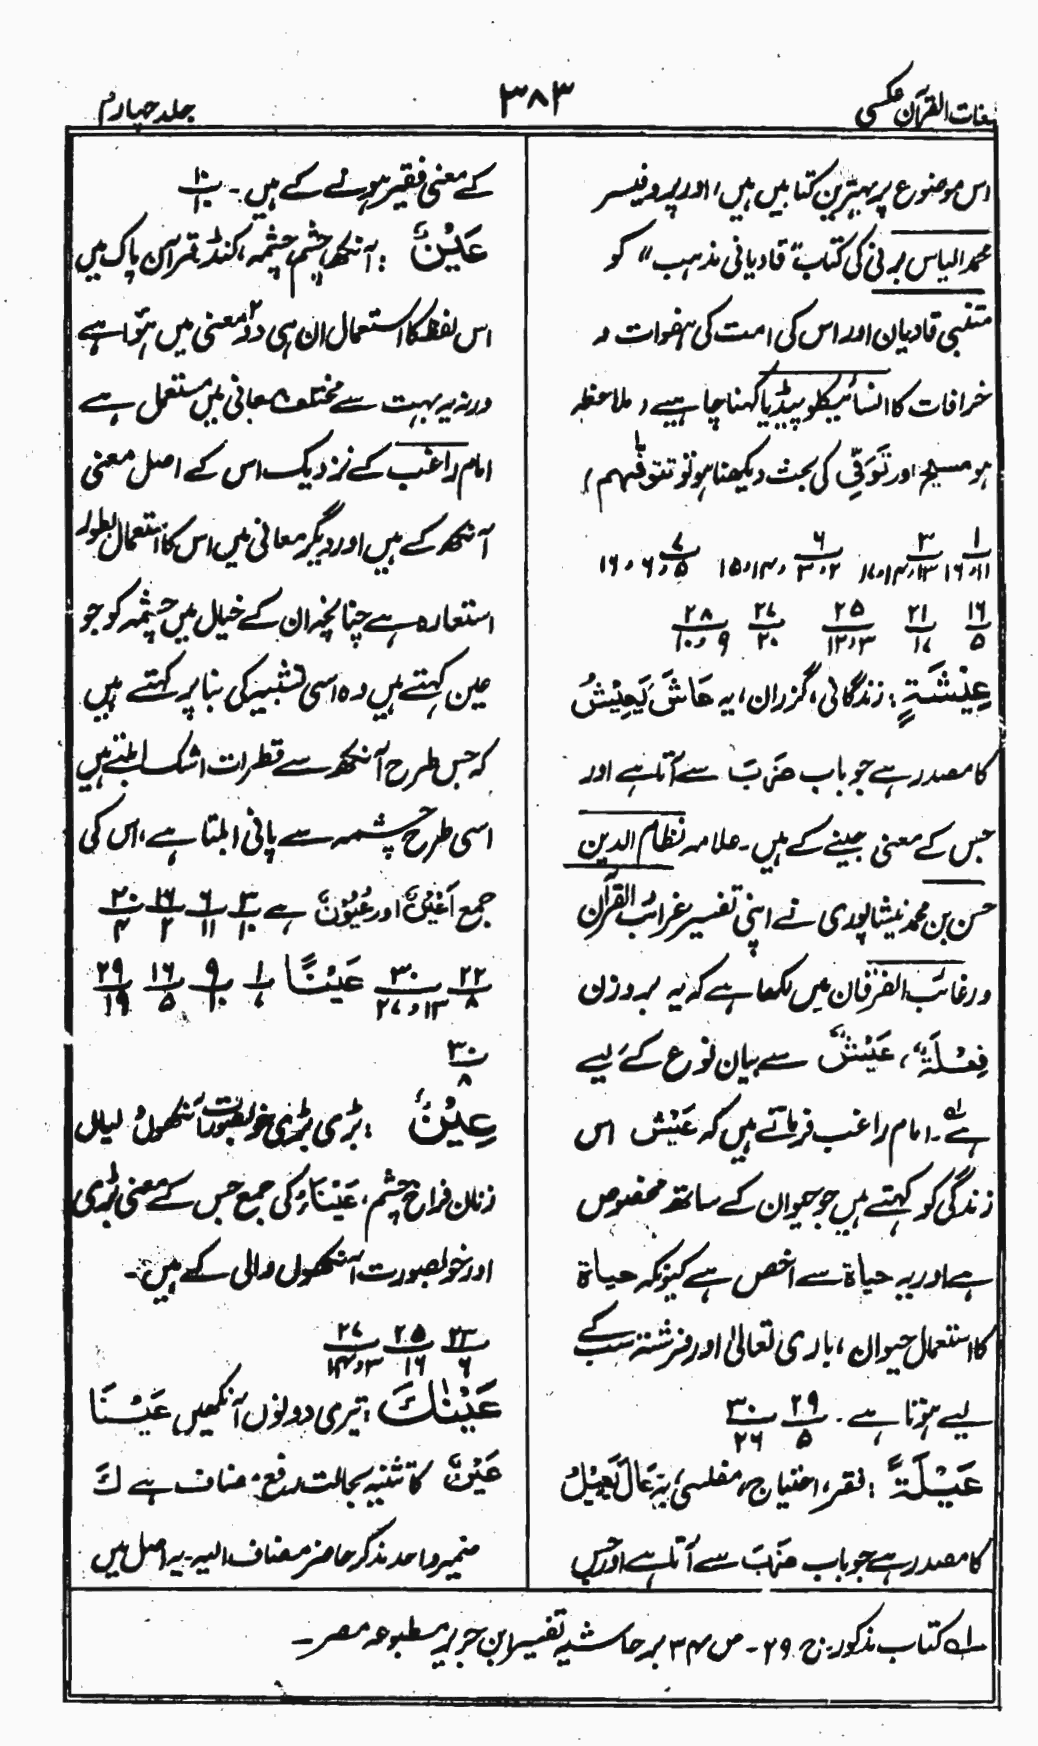 لغات القرآن عکسی
۳۸۳
جلد چہارم
اس موضوع پر بہترین کتابیں ہیں، اور پروفیسر
محمد الیاس برنی کی کتاب "قادیانی مذہب" کو
متنبی قادیان اور اس کی امت کی ہفوات و
خرافات کا انسائیکلوپیڈیا کہنا چاہیے، ملاحظہ
ہو مسیح اور تَوَفّی کی بحث دیکھنا ہو تو
۱ ۳ ۶ ۷
۱۶،۱۱ ۱۷،۱۴،۱۳ ۱۵،۱۴،۳،۲ ۱۶،۶،۵
۱۶ ۲۱ ۲۵ ۲۷ ۲۸
۵ ۱۷ ۱۲،۳ ۲۰ ۱۰،۹
عِیْشَۃٍ : زندگانی، گزران، یہ عَاشَ یَعِیْشُ
کا مصدر ہے جو باب ضَرَبَ سے آتا ہے اور
جس کے معنی جینے کے ہیں۔ علامہ نظام الدین
حسن بن محمد نیشاپوری نے اپنی تفسیر غرائب القرآن
ورغائب الفرقان میں لکھا ہے کہ یہ بروزن
فِعْلَۃٌ، عَیْشٌ سے بیان نوع کے لیے
ہے۔ امام راغب فرماتے ہیں کہ عَیْش اس
زندگی کو کہتے ہیں جو حیوان کے ساتھ مخصوص
ہے اور یہ حیاۃ سے اخص ہے کیونکہ حیاۃ
کا استعمال حیوان، باری تعالیٰ اور فرشتہ سب کے
لیے ہوتا ہے۔ ۲۹ ۳۰
۵ ۲۶
عَیْلَۃً : فقر، احتیاج، مفلسی، یہ عَالَ یَعِیْلُ
کا مصدر ہے جو باب ضَرَبَ سے آتا ہے اور جس
کے معنی فقیر ہونے کے ہیں۔ ۱۰
۱۰
عَیْنٌ : آنکھ، چشم، چشمہ، کنڈ، قرآن پاک میں
اس لفظ کا استعمال ان ہی دو ۲ معنی میں ہوا ہے
ورنہ یہ بہت سے مختلف معانی میں مستعمل ہے
امام راغب کے نزدیک اس کے اصل معنی
آنکھ کے ہیں اور دیگر معانی میں اس کا استعمال بطور
استعارہ ہے چنانچہ ان کے خیال میں چشمہ کو جو
عین کہتے ہیں وہ اسی تشبیہ کی بنا پر کہتے ہیں
کہ جس طرح آنکھ سے قطرات اشک ابلتے ہیں
اسی طرح چشمہ سے پانی ابلتا ہے، اس کی
جمع اَعْیُنٌ اور عُیُوْنٌ ہے ۳ ۶ ۱۶ ۲۰
۱۰ ۱۱ ۲ ۴
۲۲ ۳۰ عَیْنًا ۱ ۹ ۱۶ ۲۹
۸ ۲۷،۱۳ ۷ ۱۰ ۵ ۱۹
۳۰
۸
عِیْنٌ : بڑی بڑی خوبصورت آنکھوں والیاں
زنان فراخ چشم، عَیْنَاءُ کی جمع جس کے معنی بڑی
اور خوبصورت آنکھوں والی کے ہیں۔
۲۳ ۲۵ ۲۷
۶ ۱۶ ۱۴،۳
عَیْنٰکَ : تیری دونوں آنکھیں عَیْنَا
عَیْنٌ کا تثنیہ بحالت رفع، مضاف ہے کَ
ضمیر واحد مذکر حاضر مضاف الیہ۔ یہ اصل میں
لہ کتاب مذکور: ج ۲۹۔ ص ۳۴ بر حاشیہ تفسیر ابن جریر مطبوعہ مصر۔